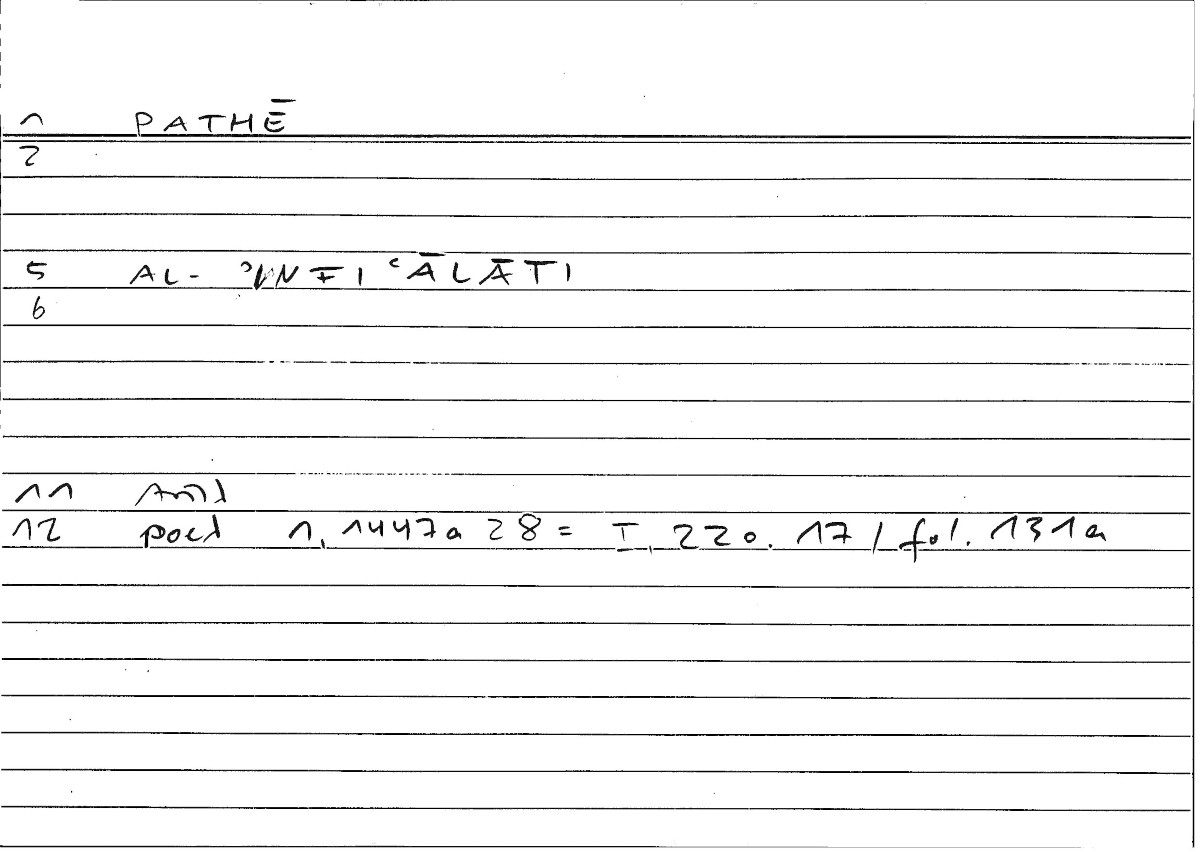 1 PATHĒ
2
5 AL- ʾINFIʿĀLĀTI
6
11 Arist
12 poet 1, 1447a 28 = I, 220. 17 / fol. 131a